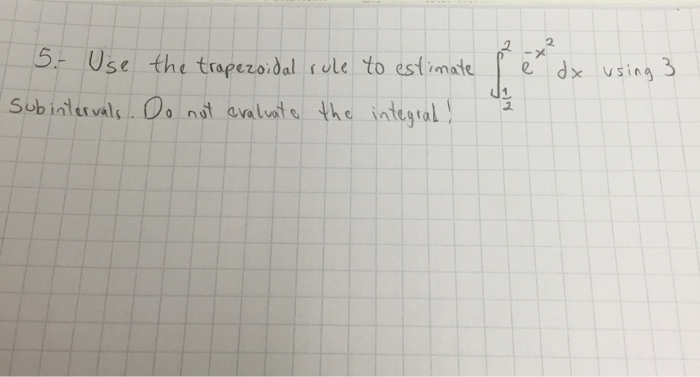 5.- Use the trapezoidal rule to estimate ∫_{1/2}^{2} e^{-x^2} dx using 3
Subintervals. Do not evaluate the integral!